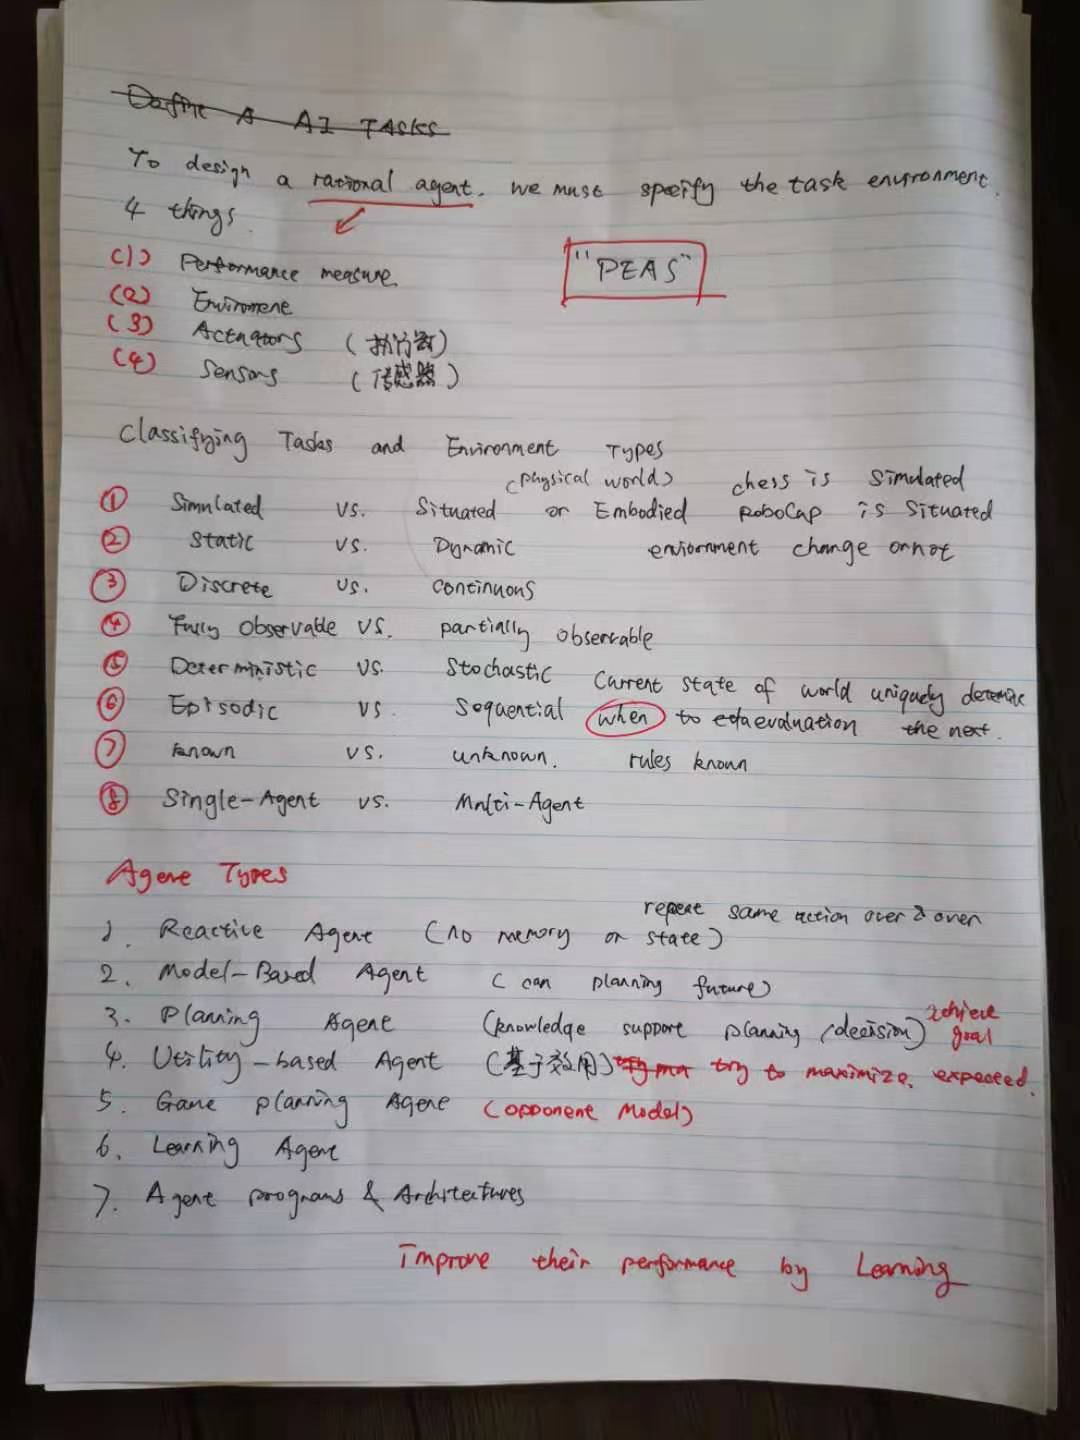 Define A AI TASKS
To design a rational agent. we must specify the task environment.
4 things.
(1) Performance measure.
"PEAS"
(2) Enviroment
(3) Actuators (执行器)
(4) Sensors (传感器)
Classifying Tasks and Environment Types
(physical world) chess is Simulated
① Simulated vs. Situated or Embodied RoboCap is Situated
② Static vs. Dynamic enviornment change or not
③ Discrete vs. continuous
④ Fully Observable vs. partially observable
⑤ Deterministic vs. Stochastic Current state of world uniquely determine
⑥ Episodic vs. Sequential when to evaluation the next.
⑦ known vs. unknown. rules known
⑧ Single-Agent vs. Multi-Agent
Agent Types
repeat same action over & over
1. Reactive Agent (no memory or state)
2. Model-Based Agent (can planning future)
3. Planning Agent (knowledge support planning/decision) achieve goal
4. Utility-based Agent (基于效用) try to maximize. expected.
5. Game planning Agent (opponent Model)
6. Learning Agent
7. Agent programs & Architectures
Improve their performance by Learning